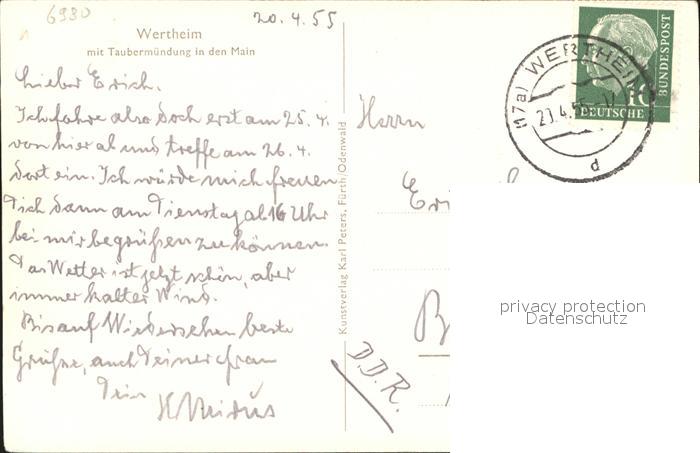 6980
20.4.55
Wertheim
mit Taubermündung in den Main
Lieber Erich.
Ich fahre also doch erst am 25.4.
von hier ab und treffe am 26.4.
dort ein. Ich würde mich freuen
Dich dann am Dienstag ab 16 Uhr
bei mir begrüßen zu können.
Das Wetter ist jetzt schön, aber
immer kalter Wind.
Bis auf Wiedersehen beste
Grüße, auch Deiner Frau
Dein
Kunstverlag Karl Peters, Fürth/Odenwald
Herrn
D.D.R.
(17a) WERTHEIM
d
10
DEUTSCHE
BUNDESPOST
privacy protection
Datenschutz